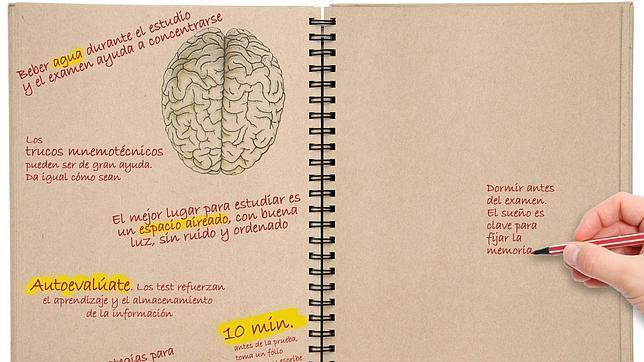 Beber agua durante el estudio
y el examen ayuda a concentrarse
Los
trucos mnemotécnicos
pueden ser de gran ayuda.
Da igual cómo sean
El mejor lugar para estudiar es
un espacio aireado, con buena
luz, sin ruido y ordenado
Autoevalúate. Los test refuerzan
el aprendizaje y el almacenamiento
de la información
10 min.
antes de la prueba,
toma un folio
escribe
para
Dormir antes
del examen.
El sueño es
clave para
fijar la
memoria